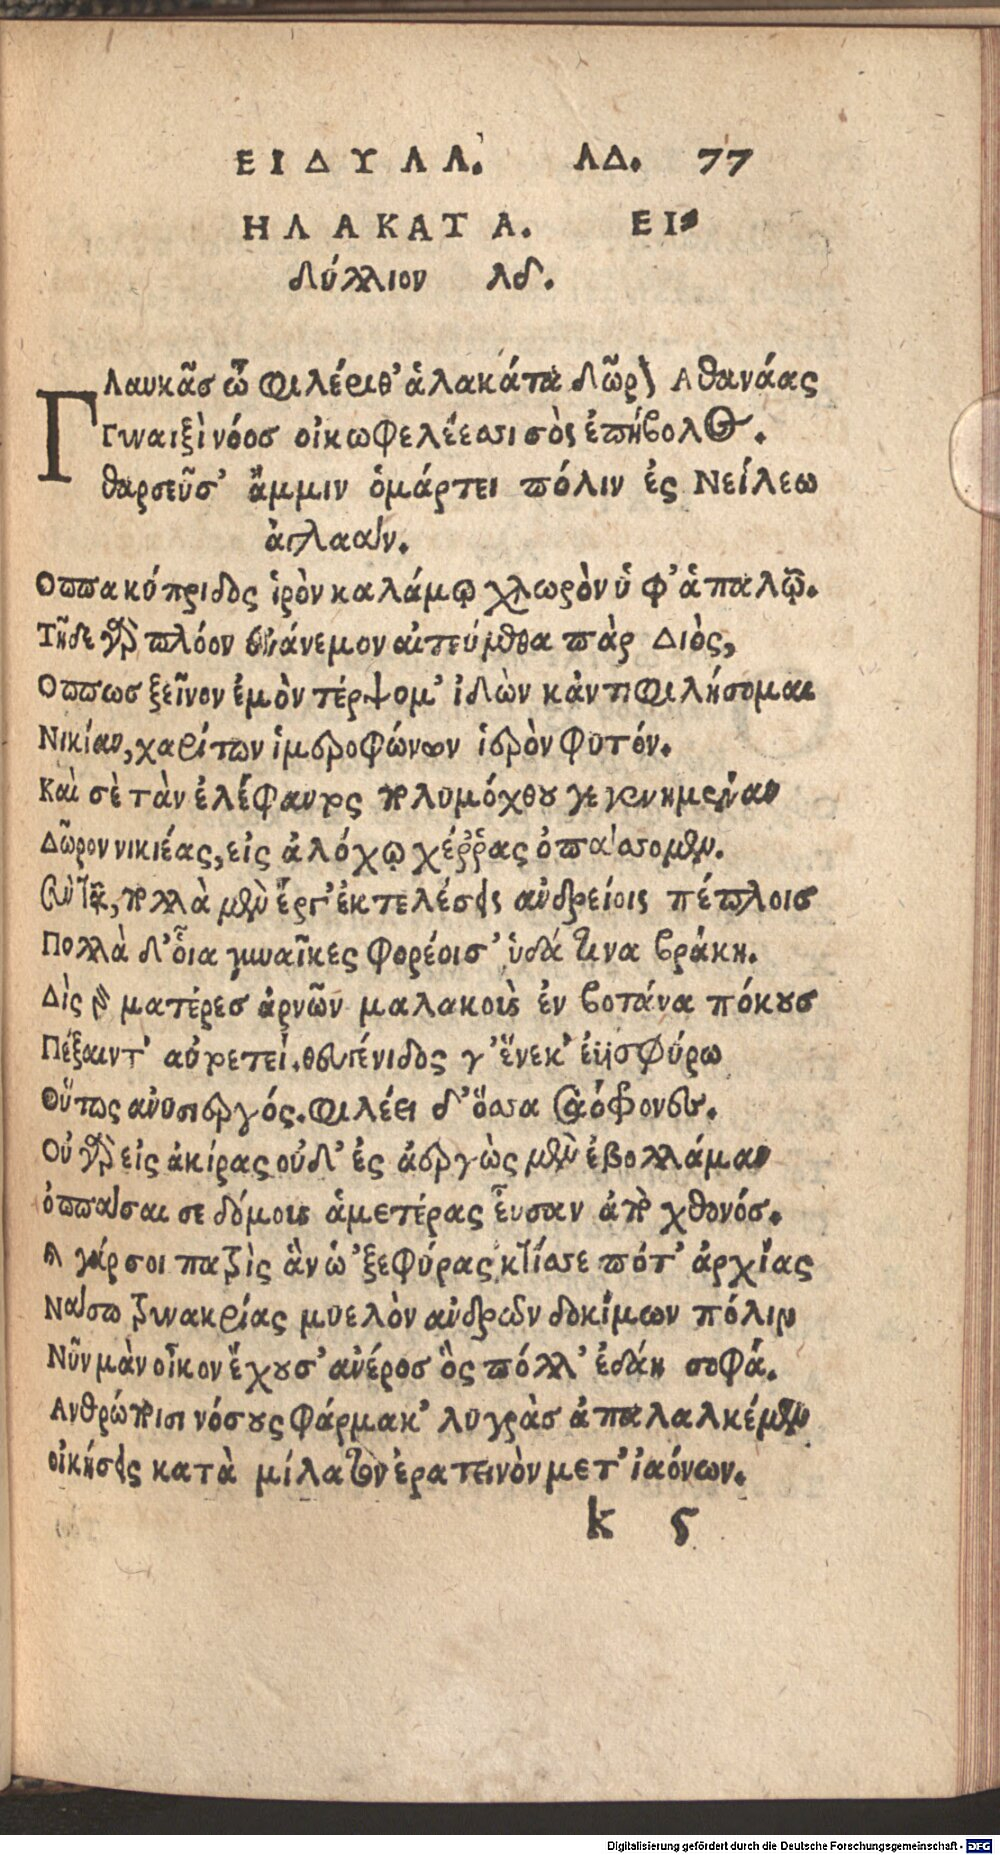 ΕΙΔΥΛΛ. ΛΔ. 77
ΗΛΑΚΑΤΑ. ΕΙ-
δύλλιον λδ.
Γλαυκᾶσ ὦ φιλέριθ' ἀλακάτα δῶρον Αθαναάς
Γυναιξὶ νόοσ οἰκωφελέεσσι σὸς ἐπήβολος.
θαρσεῦσ' ἄμμιν ὁμάρτει πόλιν ἐς Νείλεω
ἀγλαάν.
Οππα κύπριδος ἱρὸν καλάμῳ χλωρὸν ὑφ' ἁπαλῷ.
Τῆδε γὰρ πλόον εὐάνεμον αἰτεύμεθα πὰρ Διὸς,
Οππωσ ξεῖνον ἐμὸν τέρψομ' ἰδὼν κἀντιφιλήσομαι
Νικίαν, χαρίτων ἱμεροφώνων ἱερὸν φυτόν.
Καὶ σὲ τὰν ἐλέφαντος πολυμόχθου γεγενημέναν
Δῶρον νικιέας, εἰς ἀλόχῳ χέρρας ὀπάσσομεν.
Σὺ τᾷ, πολλὰ μὲν ἔργ' ἐκτελέσεις ἀνδρείοις πέπλοισ
Πολλὰ δ' οἷα γυναῖκες φορέοισ' ὑδάτινα βράκη.
Δὶς γὰρ ματέρεσ ἀρνῶν μαλακοὺς ἐν βοτάνα πόκουσ
Πέξαιντ' αὐτετεί. θευγένιδος γ' ἕνεκ' ἐϋσφύρω
Οὕτως ἀνυσιεργός. φιλέει δ' ὅσσα σαόφρονες.
Οὐ γὰρ εἰς ἀκίρας οὐδ' ἐς ἀεργὼς μὲν ἐβολλάμαν
ὀππάσαι σε δόμοις ἁμετέρας εὖσαν ἀπὸ χθονόσ.
Α γάρ σοι πατρὶς ἃν ὡ' ξεφύρας κτίσσε πότ' ἀρχίας
Νάσω τρινακρίας μυελὸν ἀνδρῶν δοκίμων πόλιν
Νῦν μὰν οἶκον ἔχουσ' ἀνέροσ ὃς πόλλ' ἐδάη σοφά.
Ανθρώποισι νόσους φάρμακ' λυγρὰσ ἀπαλαλκέμεν
οἰκήσεις κατὰ μίλατον ἐρατεινὸν μετ' ἰαόνων.
k 5
Digitalisierung gefördert durch die Deutsche Forschungsgemeinschaft - DFG